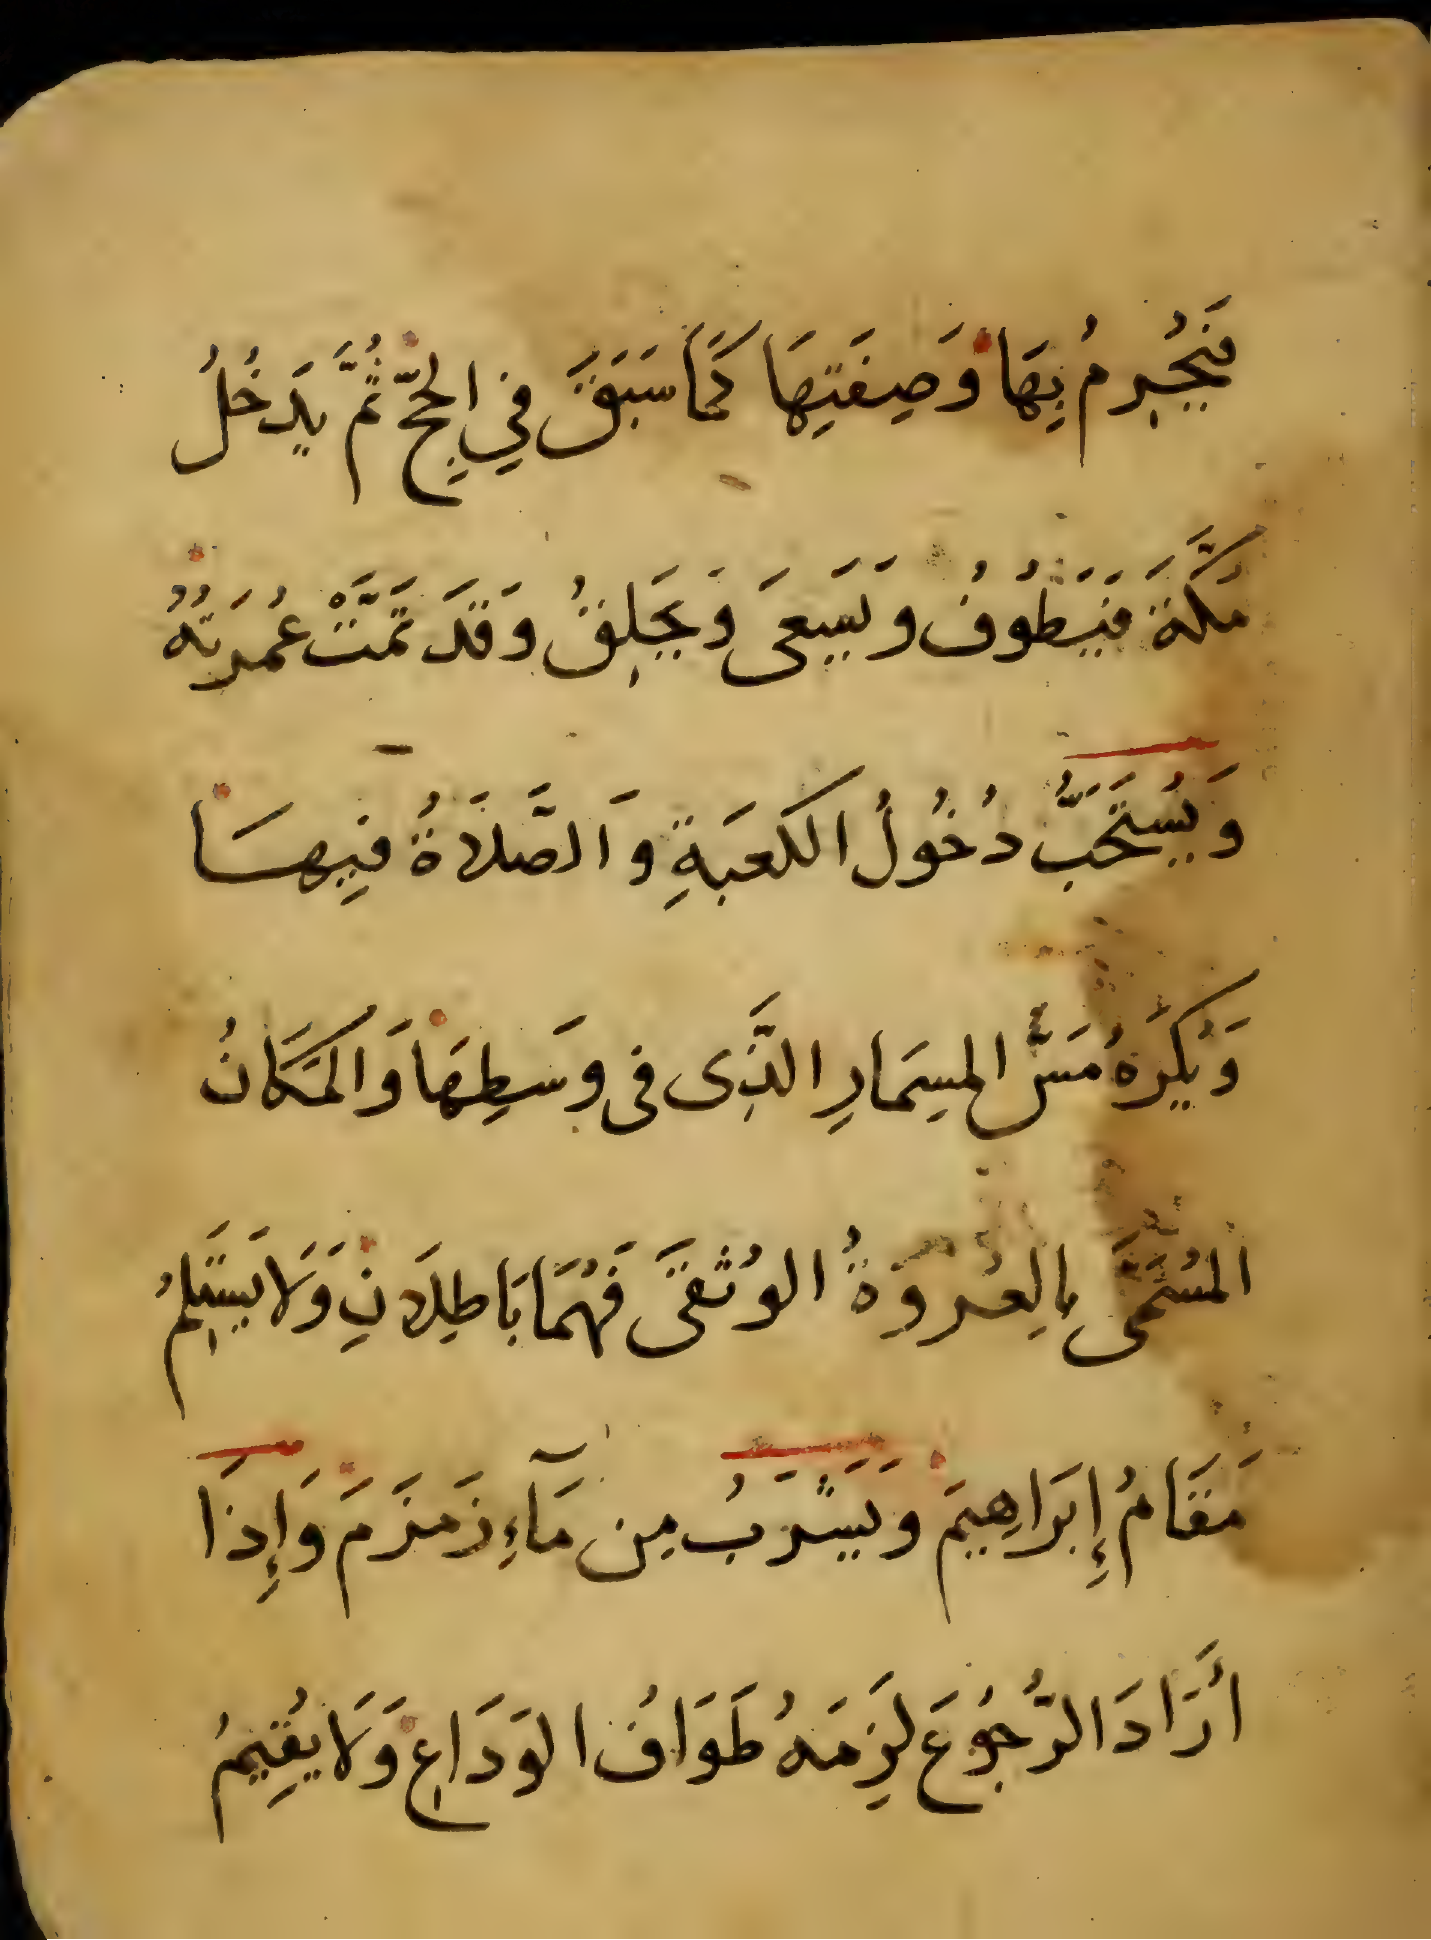 فَيُحْرِمُ بِهَا وَصِفَتِهَا كَمَا سَبَقَ فِي الحَجِّ ثُمَّ يَدخُلُ
مَكَّةَ فَيَطُوفُ وَيَسَعىَ وَيَحلِقُ وَقَدَ تَمَّتْ عُمرَتُهُ
وَيُستَحَبُّ دُخُولُ الكَعبَةِ وَالصَّلَاةُ فِيهَا
وَيُكرَهُ مَسُّ المِسمَارِ الَّذِى فى وَسَطِهَا وَالمَكَانُ
المُسَمَّى بِالعُروَةُ الوُثقَى فَهُمَا بَاطِلَانِ وَلَا يَستَلِمُ
مَقَامُ إِبرَاهِيمَ وَيَشَرَبُ مِن مَآءِ زَمزَمَ وَإِذَا
أَرَادَ الرُّجُوعَ لَزِمَهُ طَوَافُ الوَدَاعِ وَلَا يُقِيمُ